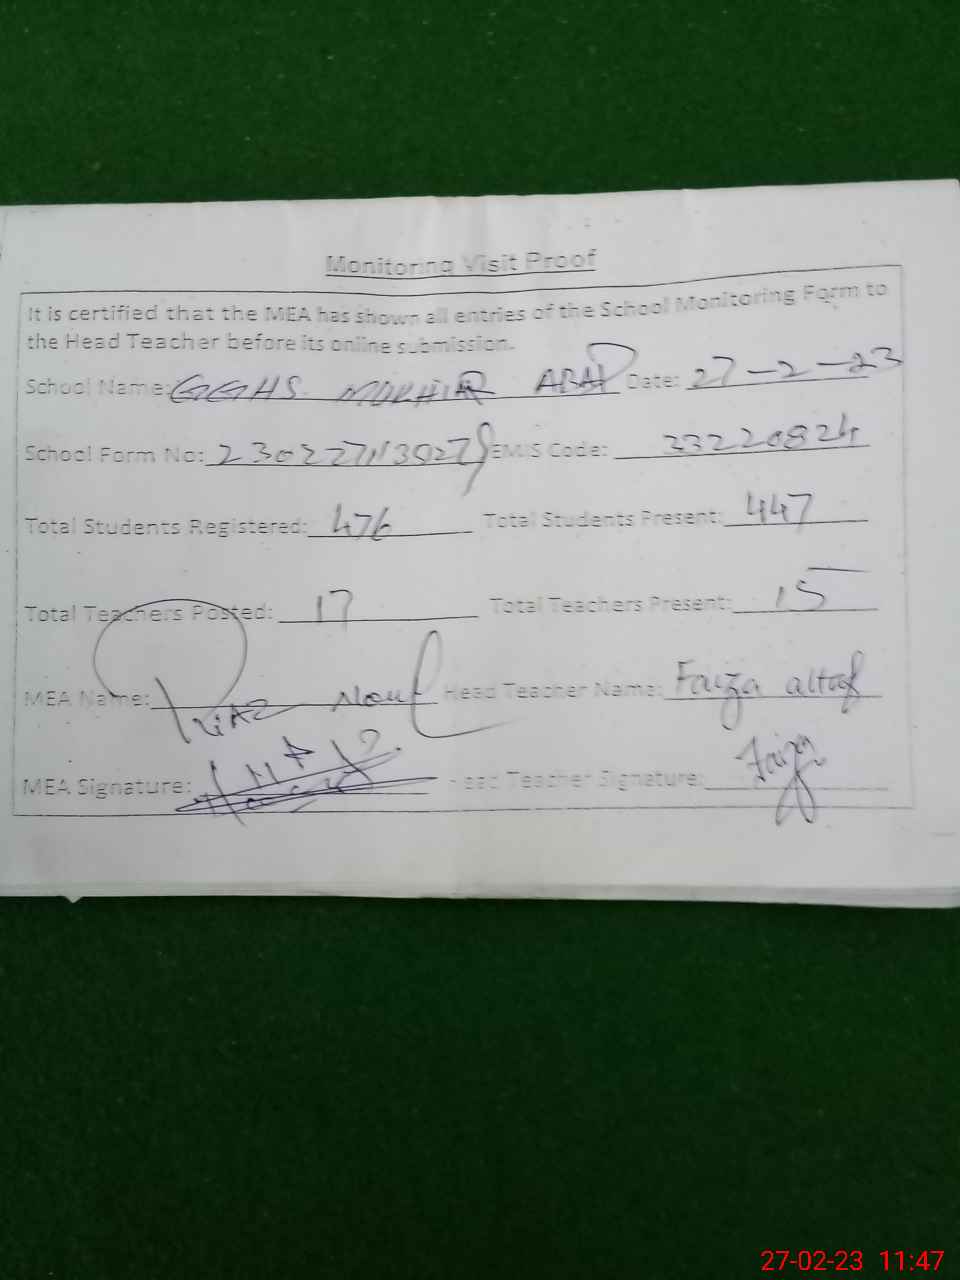 Monitoring Visit Proof
It is certified that the MEA has shown all entries of the School Monitoring Form to
the Head Teacher before its online submission.
School Name: GGHS MUKHTAR ABAD Date: 27-2-23
School Form No: EMIS Code: 33220824
Total Students Registered: 476 Total Students Present: 447
Total Teachers Posted: 17 Total Teachers Present: 15
MEA Name: Riaz Head Teacher Name: Faiza altaf
MEA Signature: Head Teacher Signature: Faiza
27-02-23 11:47